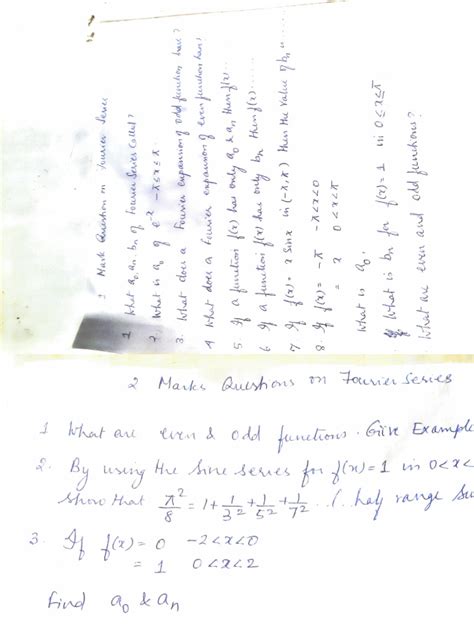 1 Mark Question on Fourier Series
1 What a₀, aₙ, bₙ of Fourier Series Called?
2. What is a₀ of e⁻ˣ -π≤x≤π.
3. What does a Fourier expansion of odd function have?
4 What does a Fourier expansion of even function have?
5 If a function f(x) has only a₀ & aₙ then f(x)...
6 If a function f(x) has only bₙ then f(x).....
7 If f(x)= x sinx in (-π,π) then the value of bₙ is ....
8. If f(x) = -π -π<x<0
= x 0<x<π
What is a₀.
What is bₙ for f(x)=1 in 0≤x≤π
What are even and odd functions?
2 Marks Questions on Fourier Series
1 What are even & odd functions. Give Example
2. By using the Sine series for f(x)=1 in 0<x<
show that π²/8 = 1+1/3²+1/5²+1/7²...(. half range
3. If f(x)= 0 -2<x<0
= 1 0<x<2
Find a₀ & aₙ